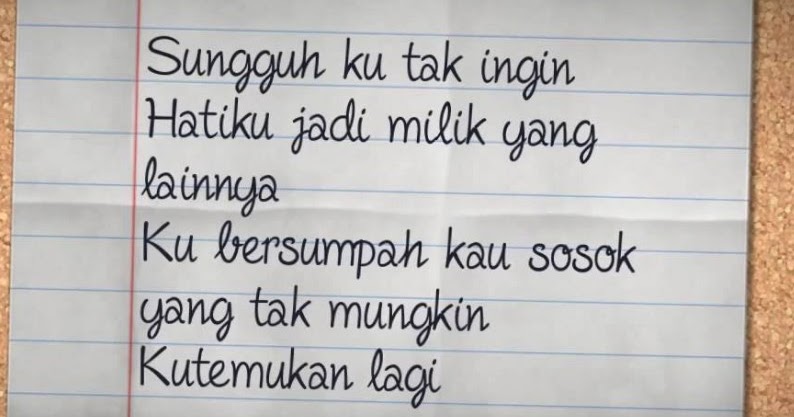 Sungguh ku tak ingin
Hatiku jadi milik yang
lainnya
Ku bersumpah kau sosok
yang tak mungkin
Kutemukan lagi